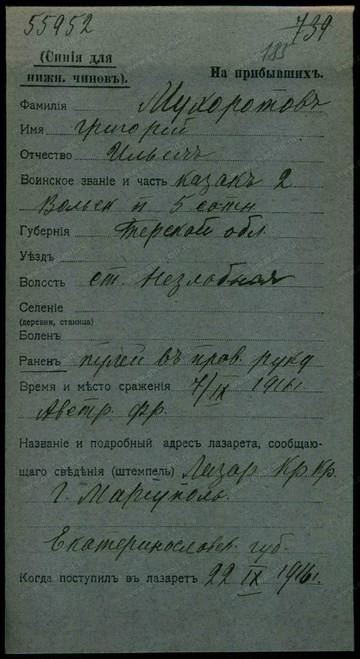 55952 739
(Синія для
нижн. чиновъ).
185
На прибывшихъ.
Фамилія Мухоротовъ
Имя Григорій
Отчество Ильичъ
Воинское званіе и часть казакъ 2
Вольск п 5 сотн
Губернія Терской обл
Уѣздъ
Волость ст. Незлобная
Селеніе
(деревня, станица)
Боленъ
Раненъ пулей въ прав. руку
Время и мѣсто сраженія 7/IX 1916г
Австр. фр.
Названіе и подробный адресъ лазарета, сообщаю-
щаго свѣдѣнія (штемпель) Лазар. Кр. Кр.
г. Маріуполь.
Екатеринославск. губ.
Когда поступилъ въ лазаретъ 22 IX 1916г.